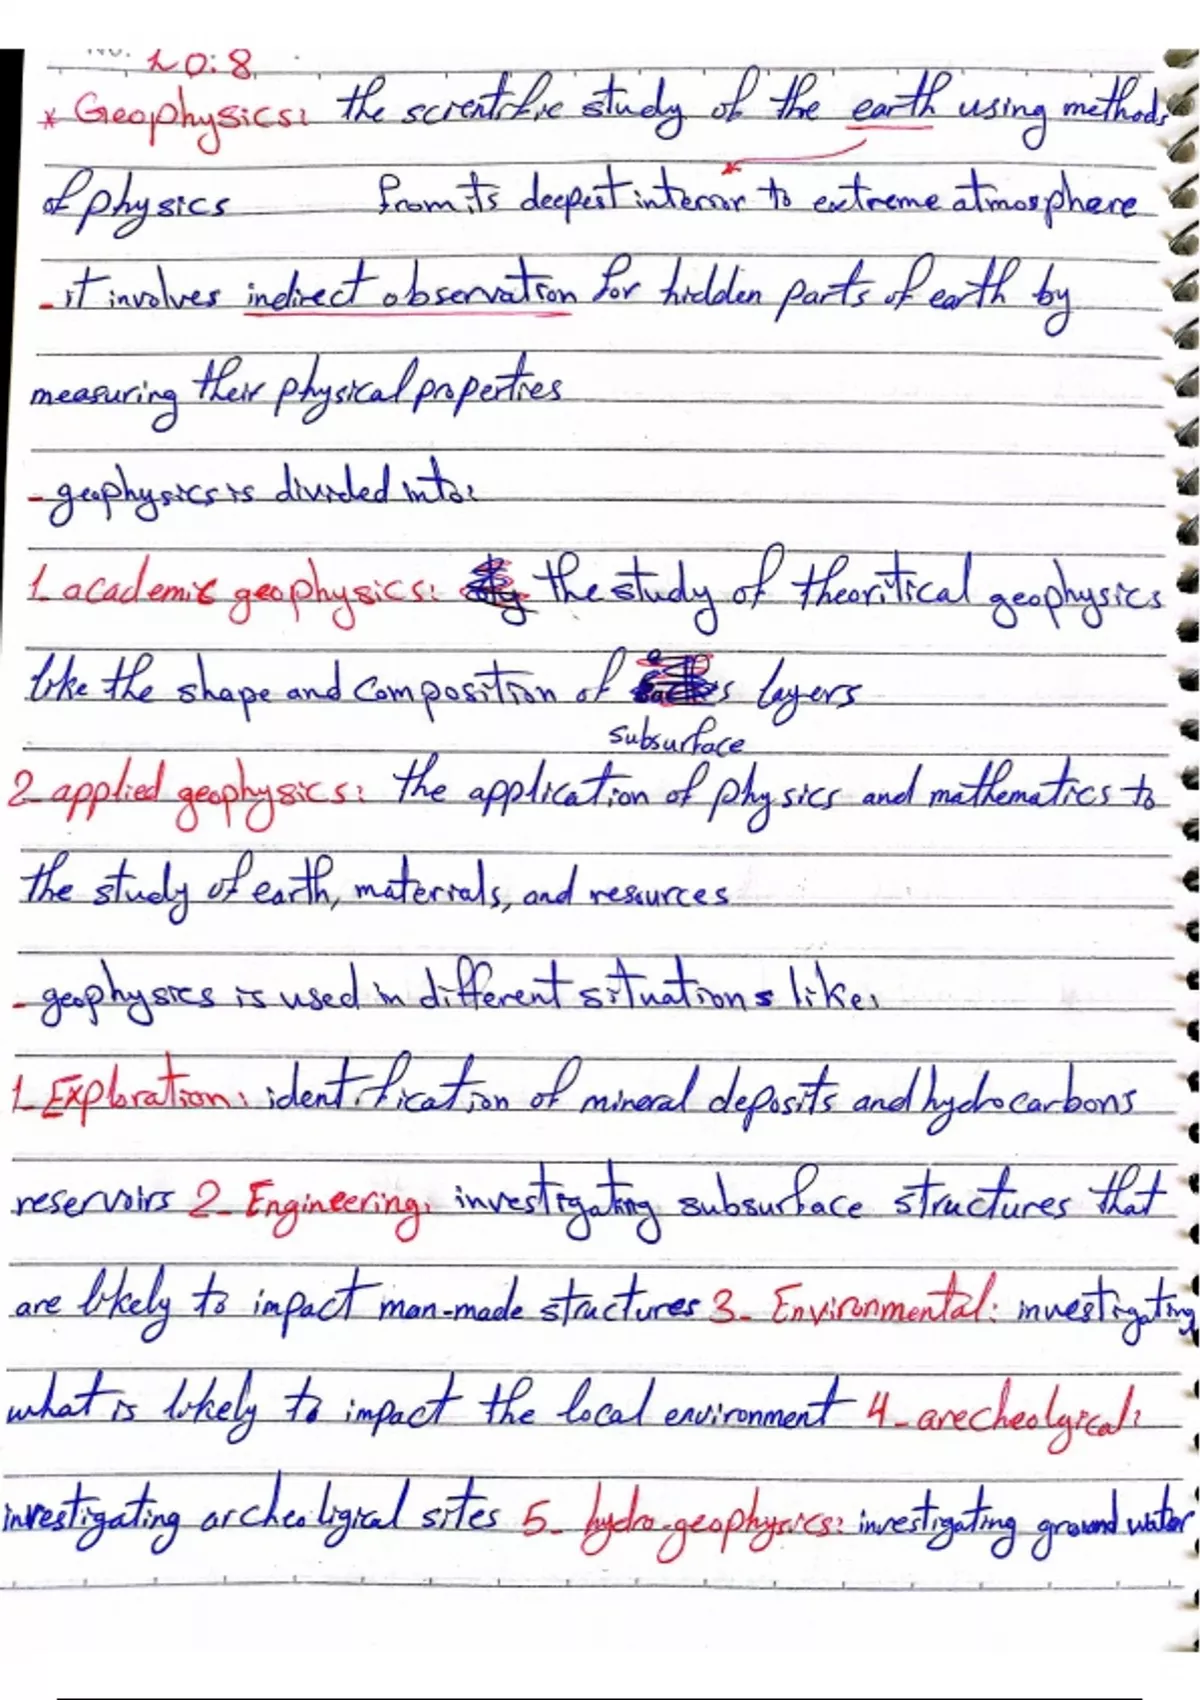 No. LO:8
* Geophysics: the scientific study of the earth using methods
of physics from its deepest interior to extreme atmosphere
- it involves indirect observation for hidden parts of earth by
measuring their physical properties
- geophysics is divided into:
1- academic geophysics: the study of theoritical geophysics
like the shape and composition of layers
subsurface
2- applied geophysics: the application of physics and mathematics to
the study of earth, materials, and resources
- geophysics is used in different situations like:
1- Exploration: identification of mineral deposits and hydrocarbons
reservoirs 2- Engineering: investigating subsurface structures that
are likely to impact man-made structures 3- Environmental: investigating
what is likely to impact the local environment 4- arecheolgical:
investigating archeoligical sites 5- hydro-geophysics: investigating ground water